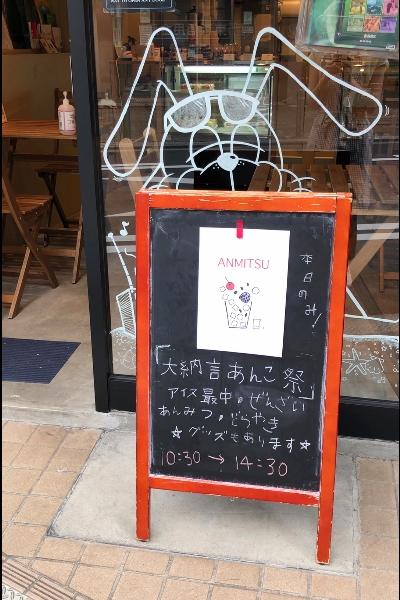 ANMITSU
本日のみ!
「大納言あんこ祭」
アイス最中。ぜんざい
あんみつ。どらやき
☆グッズもあります☆
10:30 → 14:30